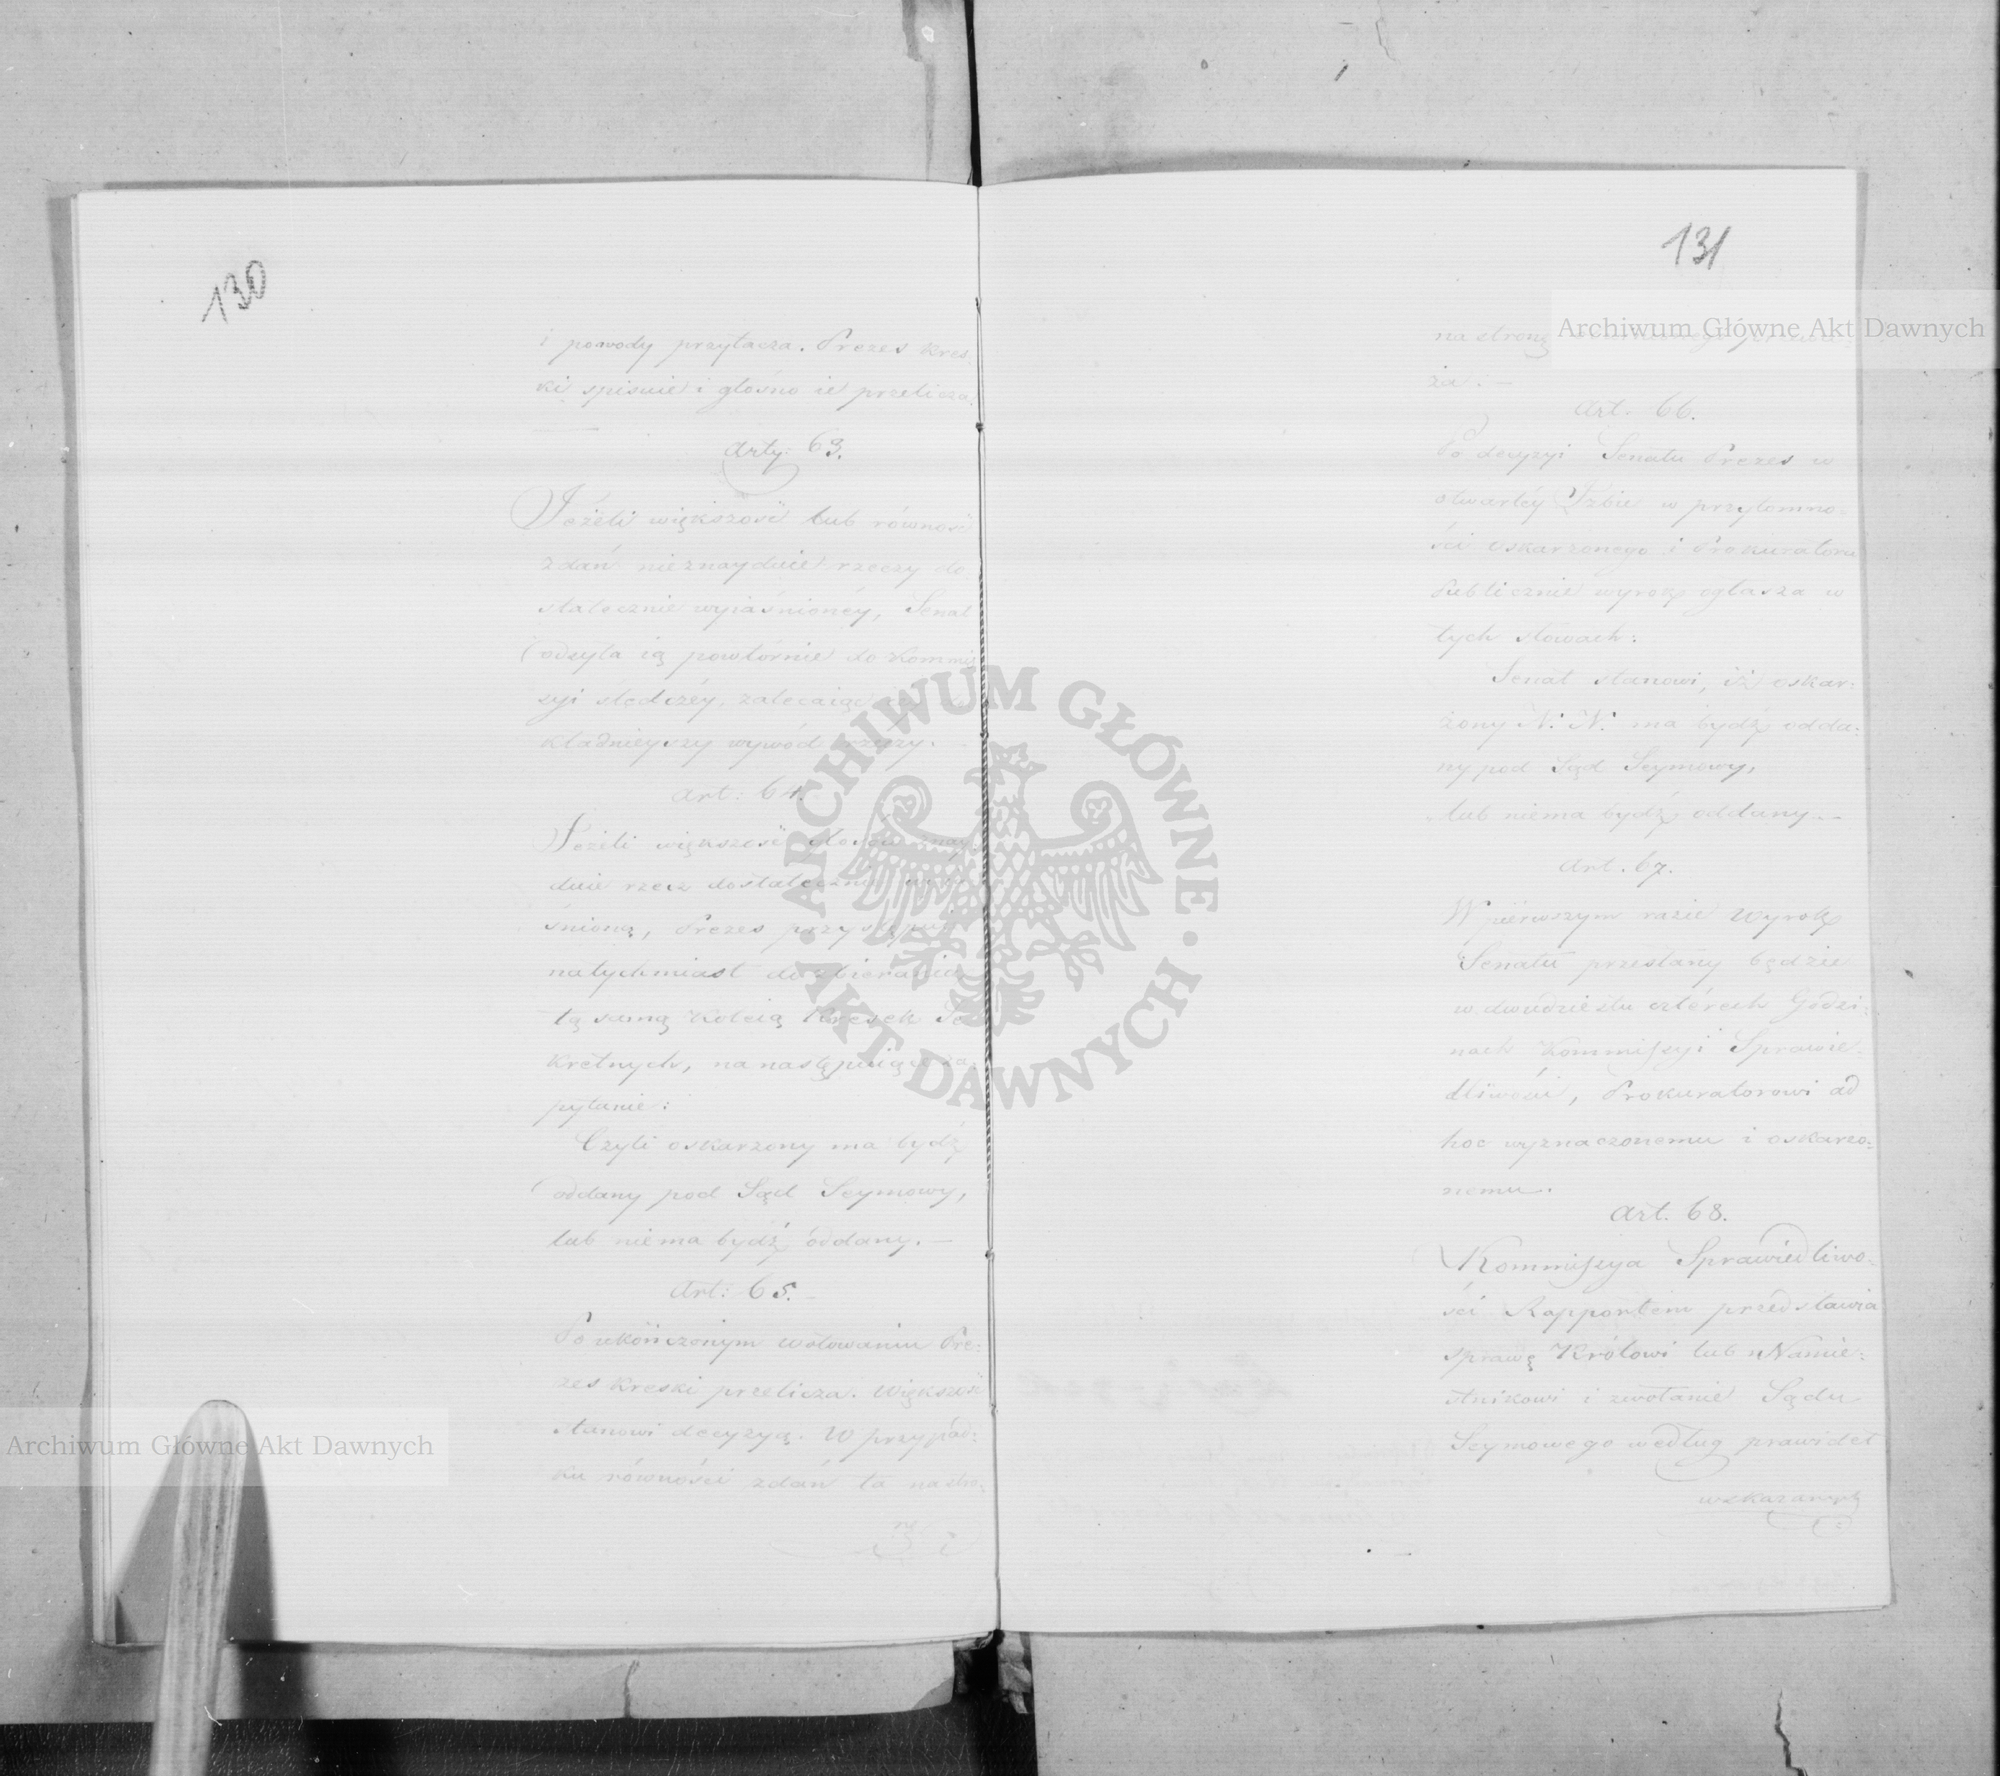 130
i powody przytacza. Prezes Kres-
ki spisuie i głośno ie przelicza.
Arty: 63.
Jeżeli większość lub równość
zdań nieznayduie rzeczy do
statecznie wyiaśnionéy, Senat
odsyła ią powtórnie do Kommis
syi śledczéy, zalecaiąc
kładnieyszy wywód rzeczy.
Art: 64.
Jeżeli większość głosów znay-
duie rzecz dostatecznie wyia
śnioną, Prezes przystępuie
natychmiast do zbierania
tą samą Koleią Kresek Se
kretnych, na następuiące za-
pytanie:
Czyli oskarzony ma bydź
oddany pod Sąd Seymowy,
lub niema bydź oddany. —
Art: 65. —
Po ukończonym wotowaniu Pre-
zes Kreski przelicza. Większość
stanowi decyzyą. W przypad-
ku równości zdań ta na stro-
nę
131
na stronę
ża. —
Art. 66.
Po decyzyi Senatu Prezes w
otwartéy Izbie w przytomno-
ści oskarzonego i Prokuratora
Publicznie wyrok ogłasza w
tych słowach:
Senat stanowi, iż oskar-
żony N. N. ma bydź odda-
ny pod Sąd Seymowy,
lub niema bydź oddany. —
Art. 67.
W piérwszym razie wyrok
Senatu przesłany będzie
w dwudziestu cztérech Godzi-
nach Kommissyi Sprawie-
dliwości, Prokuratorowi ad
hoc wyznaczonemu i oskarzo-
nemu.
Art. 68.
Kommissya Sprawiedliwo-
ści Rapportem przedstawia
sprawę Królowi lub Namie-
stnikowi i zwołanie Sądu
Seymowego według prawideł
wskazanych
Archiwum Główne Akt Dawnych
Archiwum Główne Akt Dawnych
ARCHIWUM GŁÓWNE · AKT DAWNYCH ·